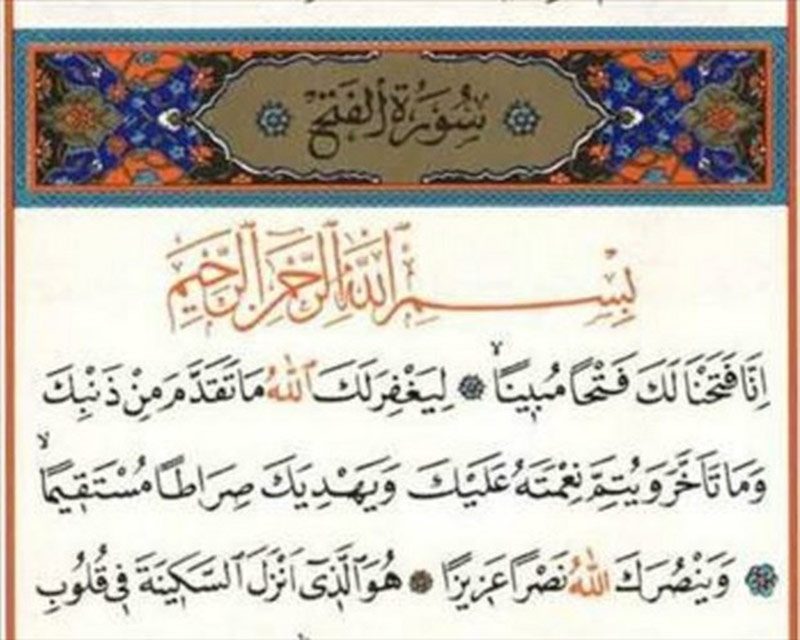 سُورَةُ الْفَتْحِ
بِسْمِ اللَّهِ الرَّحْمَٰنِ الرَّحِيمِ
اِنَّا فَتَحْنَا لَكَ فَتْحًا مُبِينًاۙ لِيَغْفِرَ لَكَ اللّٰهُ مَا تَقَدَّمَ مِنْ ذَنْبِكَ
وَمَا تَاَخَّرَ وَيُتِمَّ نِعْمَتَهُ عَلَيْكَ وَيَهْدِيَكَ صِرَاطًا مُسْتَقِيمًاۙ
وَيَنْصُرَكَ اللّٰهُ نَصْرًا عَزِيزًا هُوَ الَّذِٓى اَنْزَلَ السَّكِينَةَ فِى قُلُوبِ